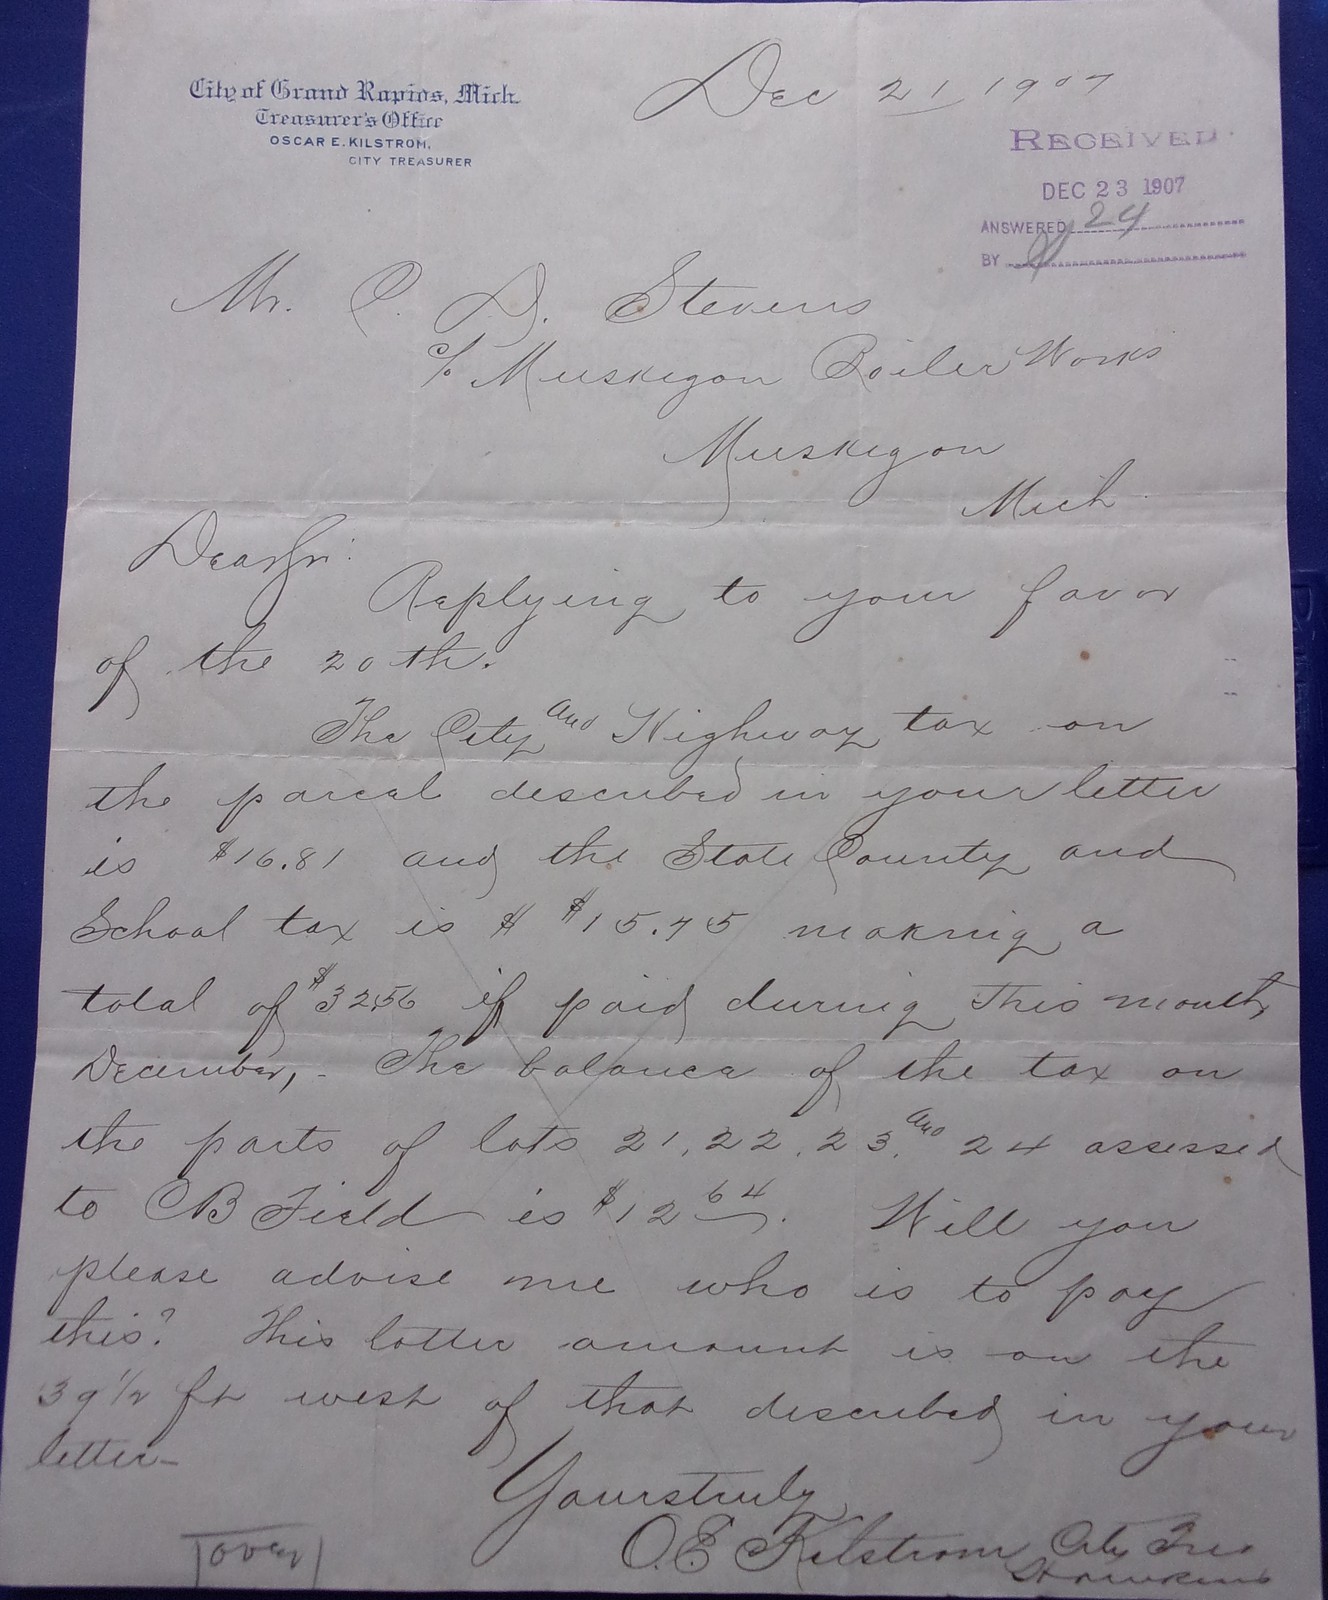 City of Grand Rapids, Mich.
Treasurer's Office
OSCAR E. KILSTROM,
CITY TREASURER
Dec 21 1907
RECEIVED
DEC 23 1907
ANSWERED 24
BY
Mr. C. D. Stevens
c/o Muskegon Boiler Works
Muskegon
Mich
Dear Sir:
Replying to your favor
of the 20th.
The City and Highway tax on
the parcel described in your letter
is $16.81 and the State County and
School tax is $ $15.75 making a
total of $32.56 if paid during this month
December, - The balance of the tax on
the parts of lots 21, 22, 23, and 24 assessed
to CB Field is $12 64. Will you
please advise me who is to pay
this? This latter amount is on the
39 1/2 ft west of that described in your
letter-
Yours truly
O. E. Kilstrom City Tres
Hawkins
over